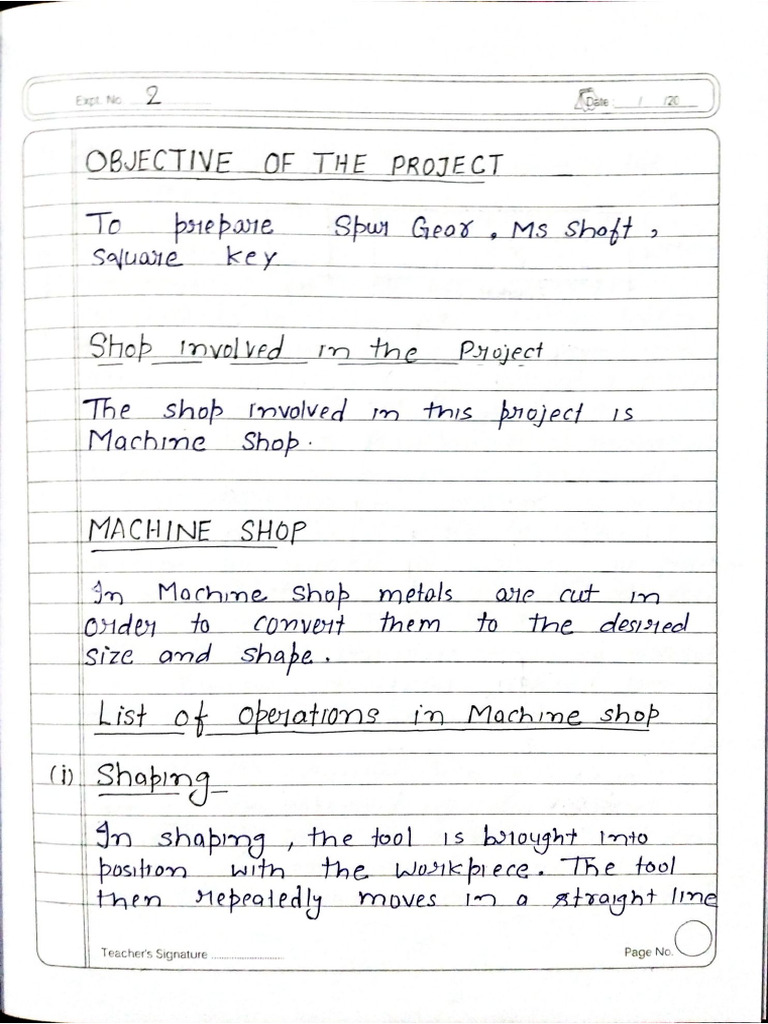 Expt. No. 2
Date / /20
OBJECTIVE OF THE PROJECT
To prepare Spur Gear, Ms Shaft,
square key
Shop involved in the Project
The shop involved in this project is
Machine Shop.
MACHINE SHOP
In Machine shop metals are cut in
order to convert them to the desired
size and shape.
List of operations in Machine shop
(i) Shaping
In shaping, the tool is brought into
position with the workpiece. The tool
then repeatedly moves in a straight line
Teacher's Signature ........................
Page No.